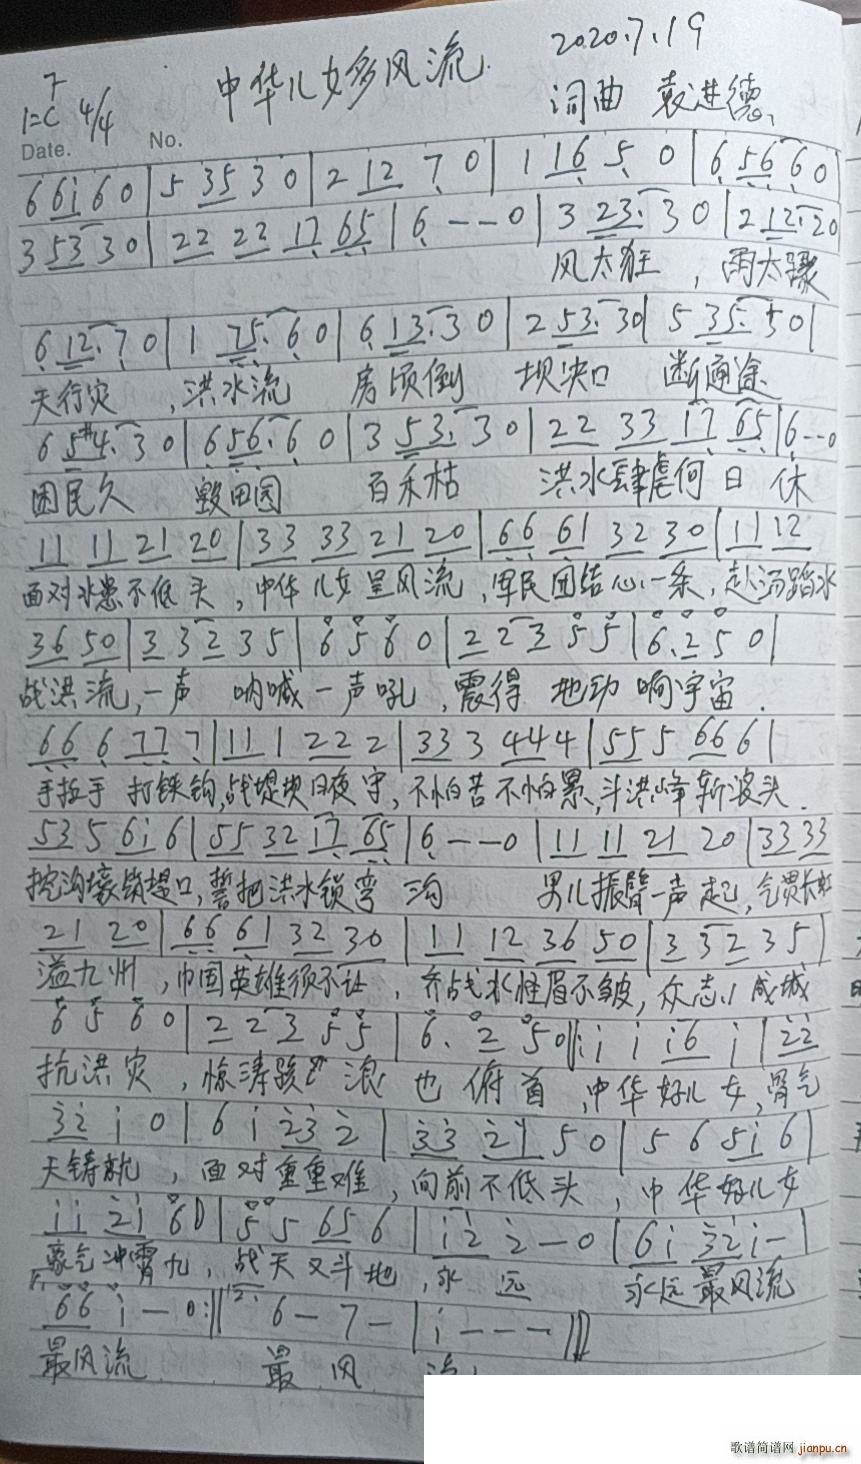 中华儿女多风流.
2020.7.19
1=C 4/4
词曲 袁进德
Date. No.
6 6i 6 0 | 5 35 3 0 | 2 12 7 0 | 1 16 5 0 | 6 56 6 0
3 53 3 0 | 22 22 17 65 | 6 - - 0 | 3 23. 3 0 | 2 12. 2 0
风太狂 , 雨太骤
6 12. 7 0 | 1 75. 6 0 | 6 13. 3 0 | 2 53. 3 0 | 5 35. 5 0 |
天行灾 , 洪水流 房顷倒 坝决口 断通途
6 5#4. 3 0 | 6 56. 6 0 | 3 53. 3 0 | 22 33 17 65 | 6 - - 0
困民久 毁田园 百禾枯 洪水肆虐何日休
11 11 21 20 | 33 33 21 20 | 66 61 32 30 | 11 12
面对水患不低头 , 中华儿女呈风流 , 军民团结心一条 , 赴汤踏水
36 50 | 3 3 2 3 5 | 6 5 6 0 | 2 2 3 5 5 | 6. 2 5 0 |
战洪流 , 一声 呐喊一声吼 , 震得 地动 啊宇宙 .
66 6 77 7 | 11 1 22 2 | 33 3 44 4 | 55 5 66 6 |
手拉手 打铁钩 , 战堤坝日夜守 , 不怕苦不怕累 , 斗洪峰斩波头 .
53 5 6i 6 | 55 32 17 65 | 6 - - 0 | 11 11 21 20 | 33 33
挖沟壕锁堤口 , 誓把洪水锁弯沟 男儿振臂一声起 , 气贯长虹
21 20 | 66 61 32 30 | 11 12 36 50 | 3 3 2 3 5 |
溢九州 , 巾国英雄须不让 , 齐战水怪眉不皱 , 众志 成城
6 5 6 0 | 2 2 3 5 5 | 6. 2 5 0 |: i i i6 i | 22
抗洪灾 , 惊涛骇 浪 也俯首 , 中华好儿女 , 骨气
32 i 0 | 6 i 23 2 | 33 2i 5 0 | 5 6 5i 6 |
天铸就 , 面对重重难 , 向前不低头 , 中华好儿女
ii 2i 6 0 | 5 5 65 6 | i2 2 - 0 | 6i 32 i - |
豪气冲霄九 , 战天又斗地 , 永远 永远最风流
66 i - 0 :|| 6 - 7 - | i - - - ||
最风流 最 风
歌谱简谱网 jianpu.cn